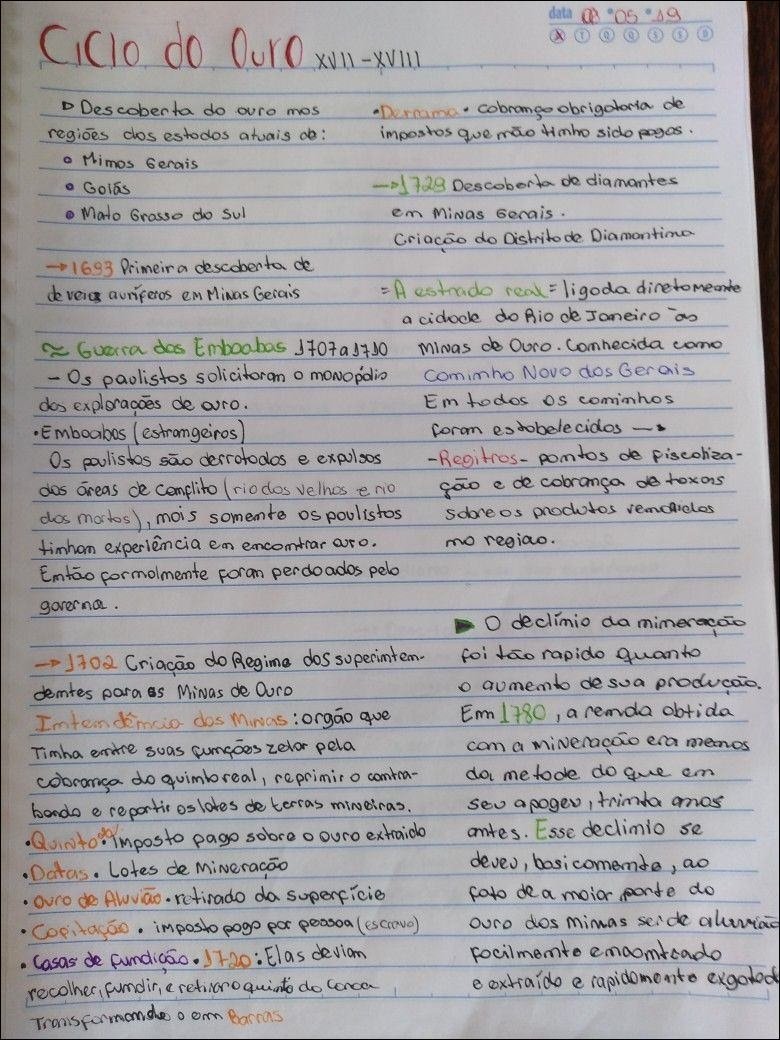 data 08 05 19
Ciclo do Ouro XVII - XVIII
Descoberta do ouro nas
regiões dos estados atuais de:
Minas Gerais
Goiás
Mato Grosso do Sul
→ 1693 Primeira descoberta de
de veios auríferos em Minas Gerais
≈ Guerra dos Emboabas 1707 a 1710
- Os paulistas solicitaram o monopólio
das explorações de ouro.
• Emboabas (estrangeiros)
Os paulistas são derrotados e expulsos
das áreas de conflito (rio das velhas e rio
das mortes), mais somente os paulistas
tinham experiência em encontrar ouro.
Então formalmente foram perdoados pelo
governa.
→ 1702 Criação do Regime dos superinten-
dentes para as Minas de Ouro
Intendência das Minas: orgão que
Tinha entre suas funções zelar pela
cobrança do quinto real, reprimir o contra-
bando e repartir os lotes de terras mineiras.
• Quinto • imposto pago sobre o ouro extraido
• Datas • Lotes de Mineração
• Ouro de Aluvião • retirado da superfície
• Capitação • imposto pago por pessoa (escravo)
• Casas de fundição • 1720: Elas devian
recolher, fundir, e retirar o quinto da Coroa
Transformando o em Barras
• Derrama • cobrança obrigatoria de
impostos que não tinha sido pagos.
→ 1729 Descoberta de diamantes
em Minas Gerais.
Criação do Distrito de Diamantina
= A estrada real = ligada diretamente
a cidade do Rio de Janeiro as
Minas de Ouro. Conhecida como
Caminho Novo dos Gerais
Em todos os caminhos
foram estabelecidos →
- Regitros - pontos de fiscaliza-
ção e de cobrança de taxas
sobre os produtos vendidos
na regiao.
O declínio da mineração
foi tão rapido quanto
o aumento de sua produção.
Em 1780, a renda obtida
com a mineração era menos
da metade do que em
seu apogeu, trinta anos
antes. Esse declinio se
deveu, basicamente, ao
fato de a maior parte do
ouro das minas ser de aluvião
facilmente encontrado
e extraído e rapidamente exgotado